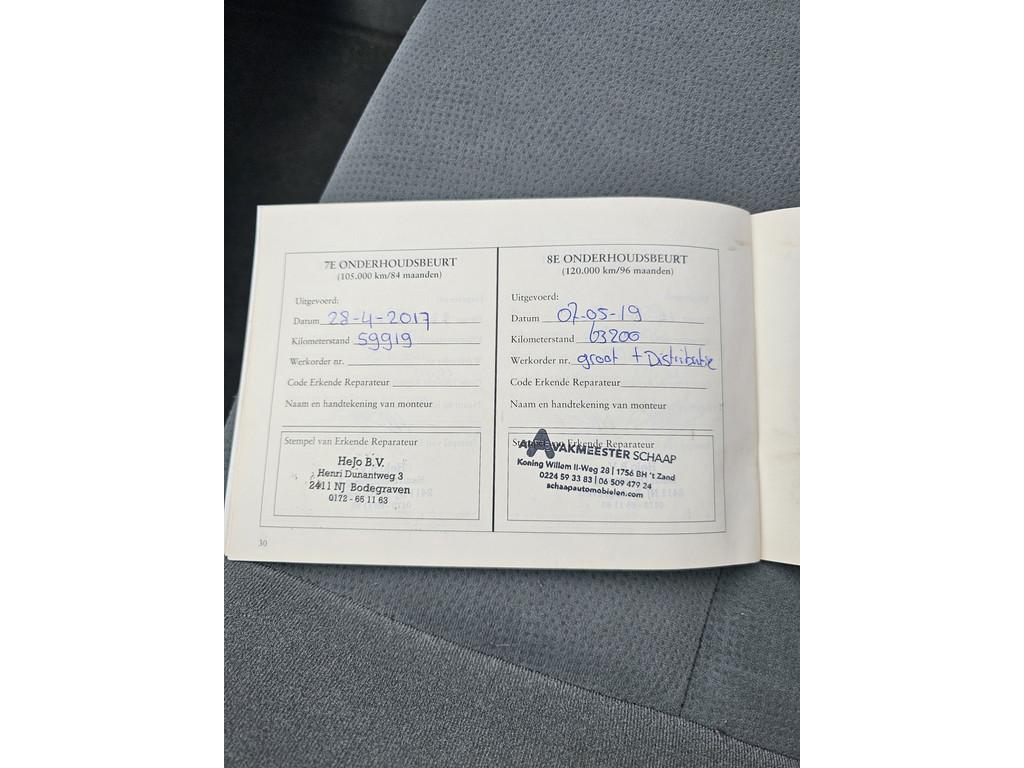 7E ONDERHOUDSBEURT
(105.000 km/84 maanden)
Uitgevoerd:
Datum 28-4-2017
Kilometerstand 59919
Werkorder nr.
Code Erkende Reparateur
Naam en handtekening van monteur
Stempel van Erkende Reparateur
HeJo B.V.
Henri Dunantweg 3
2411 NJ Bodegraven
0172 - 65 11 63
30
8E ONDERHOUDSBEURT
(120.000 km/96 maanden)
Uitgevoerd:
Datum 07-05-19
Kilometerstand 63200
Werkorder nr. groot + Distributie
Code Erkende Reparateur
Naam en handtekening van monteur
Stempel van Erkende Reparateur
VAKMEESTER SCHAAP
Koning Willem II-Weg 28 | 1756 BH 't Zand
0224 59 33 83 | 06 509 479 24
schaapautomobielen.com